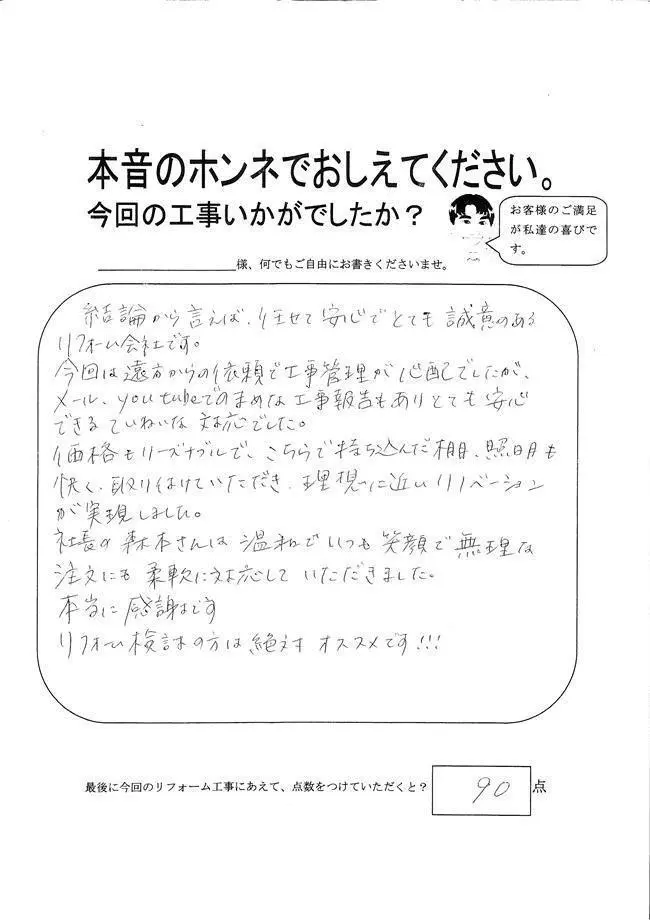 本音のホンネでおしえてください。
今回の工事いかがでしたか？
お客様のご満足
が私達の喜びで
す。
様、何でもご自由にお書きくださいませ。
結論から言えば、任せて安心でとても誠意のある
リフォーム会社です。
今回は遠方からの依頼で工事管理が心配でしたが、
メール、youtubeでのまめな工事報告もありとても安心
できるていねいな対応でした。
価格もリーズナブルで、こちらで持ち込んだ棚、照明も
快く、取り付けていただき、理想に近いリノベーション
が実現しました。
社長の森本さんは温和でいつも笑顔で無理な
注文にも柔軟に対応していただきました。
本当に感謝です
リフォーム検討の方は絶対オススメです!!!
最後に今回のリフォーム工事にあえて、点数をつけていただくと？ 90 点